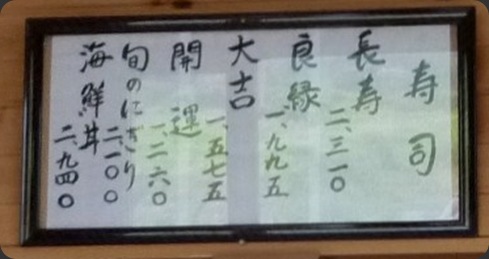 寿司
長寿 二、三一〇
良縁 一、九九五
大吉 一、五七五
開運 一、二六〇
旬のにぎり 二、一〇〇
海鮮丼 二、九四〇